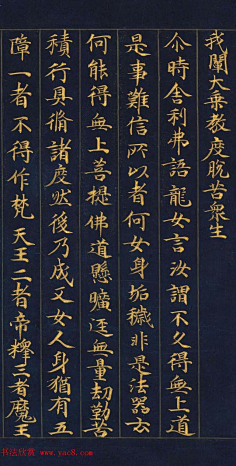 我闡大乘教度脫苦衆生
尒時舍利弗語龍女言汝謂不久得無上道
是事難信所以者何女身垢穢非是法器云
何能得無上菩提佛道懸曠逕無量劫勤苦
積行具脩諸度然後乃成又女人身猶有五
障一者不得作梵天王二者帝釋三者魔王
书法欣赏 www.yac8.com